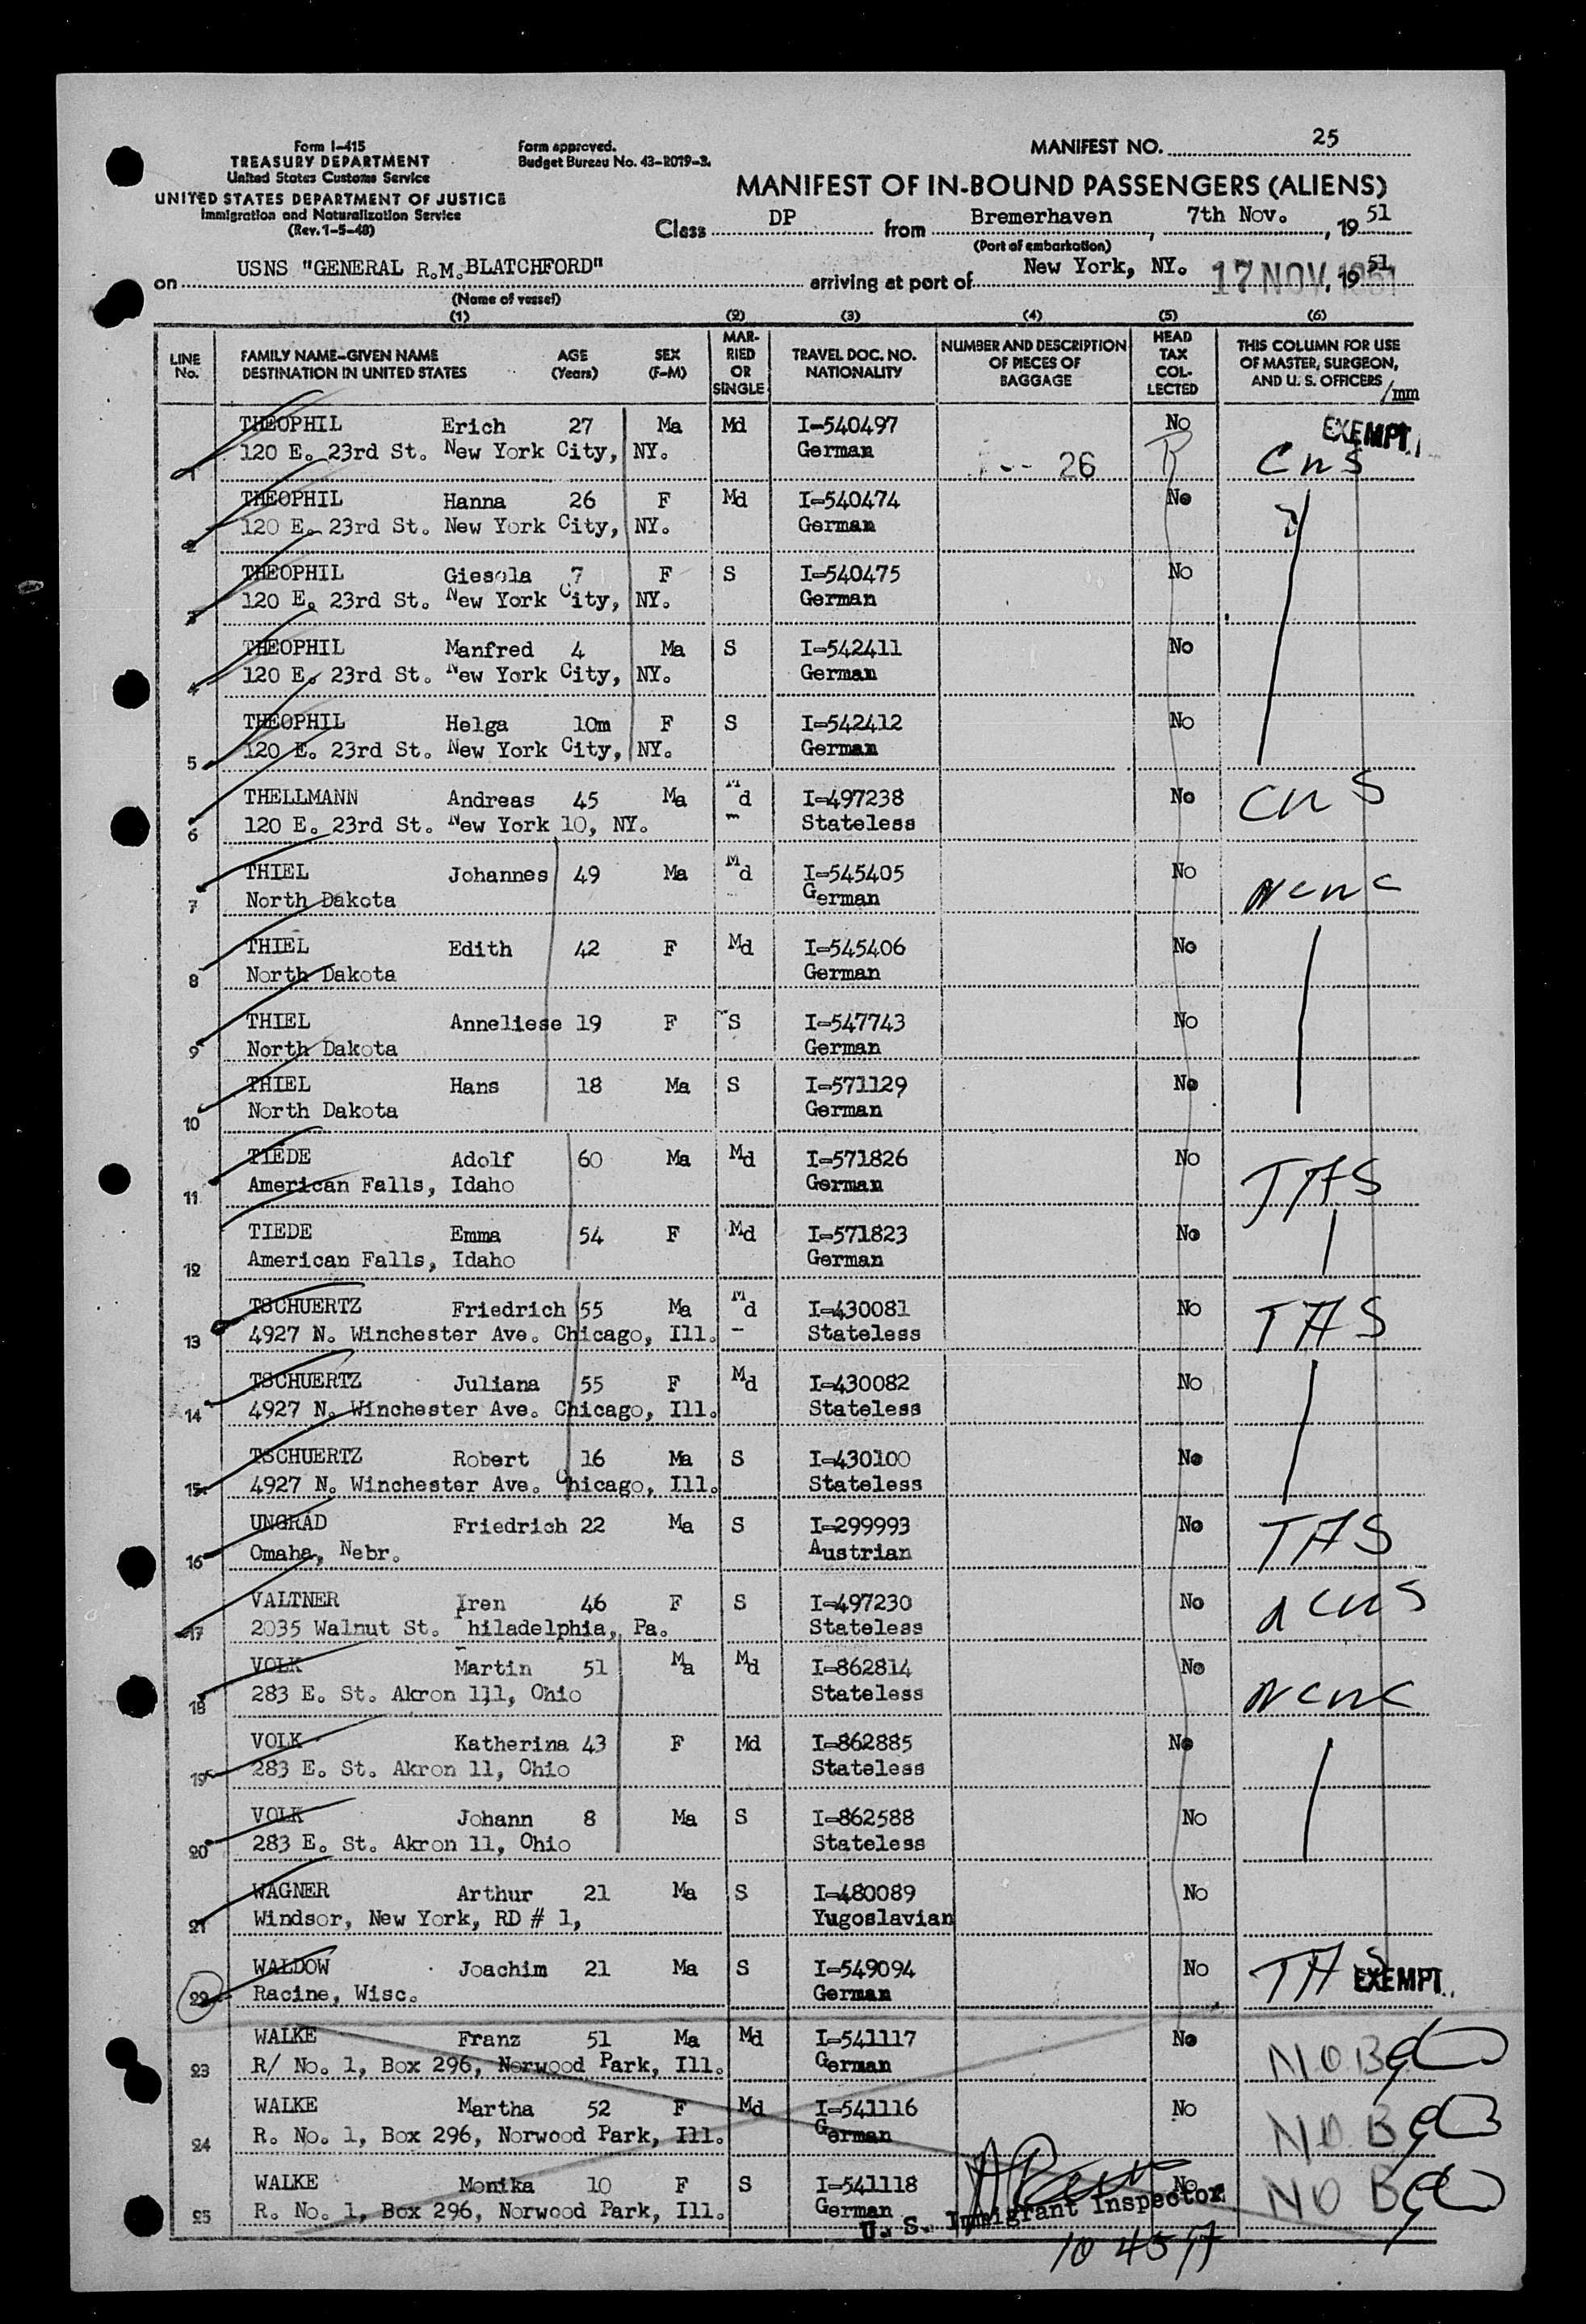 Form I-415
TREASURY DEPARTMENT
United States Customs Service
UNITED STATES DEPARTMENT OF JUSTICE
Immigration and Naturalization Service
(Rev. 1-5-48)
Form approved.
Budget Bureau No. 43-R019-3.
MANIFEST NO. 25
MANIFEST OF IN-BOUND PASSENGERS (ALIENS)
Class DP from Bremerhaven, 7th Nov., 1951
(Port of embarkation)
on USNS "GENERAL R.M.BLATCHFORD" arriving at port of New York, NY. 17 NOV, 1951
(Name of vessel)
(1) (2) (3) (4) (5) (6)
LINE No. FAMILY NAME-GIVEN NAME DESTINATION IN UNITED STATES AGE (Years) SEX (F-M) MARRIED OR SINGLE TRAVEL DOC. NO. NATIONALITY NUMBER AND DESCRIPTION OF PIECES OF BAGGAGE HEAD TAX COLLECTED THIS COLUMN FOR USE OF MASTER, SURGEON, AND U. S. OFFICERS /mm
THEOPHIL Erich 27 Ma Md I-540497 No EXEMPT.
1 120 E. 23rd St. New York City, NY. German 26 CNS
THEOPHIL Hanna 26 F Md I-540474 No
2 120 E. 23rd St. New York City, NY. German
THEOPHIL Giesela 7 F S I-540475 No
3 120 E. 23rd St. New York City, NY. German
THEOPHIL Manfred 4 Ma S I-542411 No
4 120 E. 23rd St. New York City, NY. German
THEOPHIL Helga 10m F S I-542412 No
5 120 E. 23rd St. New York City, NY. German
THELLMANN Andreas 45 Ma Md I-497238 No CNS
6 120 E. 23rd St. New York 10, NY. Stateless
THIEL Johannes 49 Ma Md I-545405 No NCWC
7 North Dakota German
THIEL Edith 42 F Md I-545406 No
8 North Dakota German
THIEL Anneliese 19 F S I-547743 No
9 North Dakota German
THIEL Hans 18 Ma S I-571129 No
10 North Dakota German
TIEDE Adolf 60 Ma Md I-571826 No TAS
11 American Falls, Idaho German
TIEDE Emma 54 F Md I-571823 No
12 American Falls, Idaho German
TSCHUERTZ Friedrich 55 Ma Md I-430081 No TAS
13 4927 N. Winchester Ave. Chicago, Ill. Stateless
TSCHUERTZ Juliana 55 F Md I-430082 No
14 4927 N. Winchester Ave. Chicago, Ill. Stateless
TSCHUERTZ Robert 16 Ma S I-430100 No
15 4927 N. Winchester Ave. Chicago, Ill. Stateless
UNGRAD Friedrich 22 Ma S I-299993 No TAS
16 Omaha, Nebr. Austrian
VALTNER Iren 46 F S I-497230 No
17 2035 Walnut St. Philadelphia, Pa. Stateless
VOLK Martin 51 Ma Md I-862814 No NCWC
18 283 E. St. Akron 111, Ohio Stateless
VOLK Katherina 43 F Md I-862885 No
19 283 E. St. Akron 11, Ohio Stateless
VOLK Johann 8 Ma S I-862588 No
20 283 E. St. Akron 11, Ohio Stateless
WAGNER Arthur 21 Ma S I-480089 No
21 Windsor, New York, RD # 1, Yugoslavian
WALDOW Joachim 21 Ma S I-549094 No TAS EXEMPT.
22 Racine, Wisc. German
WALKE Franz 51 Ma Md I-541117 No N.O.B
23 R/ No. 1, Box 296, Norwood Park, Ill. German
WALKE Martha 52 F Md I-541116 No N.O.B
24 R. No. 1, Box 296, Norwood Park, Ill. German
WALKE Monika 10 F S I-541118 No NOB
25 R. No. 1, Box 296, Norwood Park, Ill. German
U. S. Immigrant Inspector
10 45 A